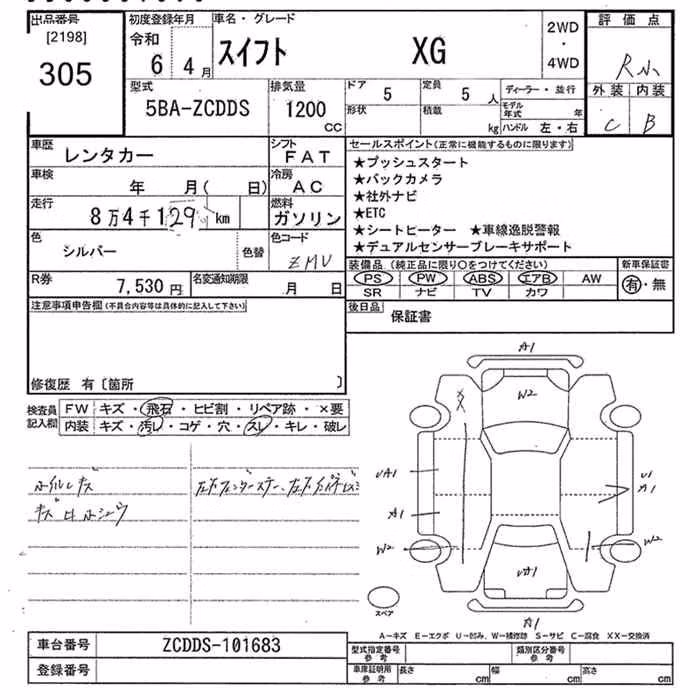 出品番号
[2198]
305
初度登録年月
令和
6 4月
車名・グレード
スイフト XG
2WD
・
4WD
評価点
R
外装 内装
C B
型式
5BA-ZCDDS
排気量
1200
CC
ドア
5
定員
5 人
形状
積載
kg
ディーラー・並行
モデル年式 年
ハンドル 左・右
車歴
レンタカー
シフト
FAT
車検
年 月( 日)
冷房
AC
走行
8万4千129km
燃料
ガソリン
色
シルバー
色替
色コード
ZMU
R券
7,530円
名変通知期限
月 日
注意事項申告欄(不具合内容等は具体的に記入して下さい)
修復歴 有〔箇所 〕
セールスポイント(正常に機能するものに限ります)
★プッシュスタート
★バックカメラ
★社外ナビ
★ETC
★シートヒーター ★車線逸脱警報
★デュアルセンサーブレーキサポート
装備品(純正品に限り○をつけてください)
PS PW ABS エアB AW
SR ナビ TV カワ
新車保証書
有・無
後日品
保証書
検査員記入欄
FW キズ・飛石・ヒビ割・リペア跡・×要
内装 キズ・汚レ・コゲ・穴・スレ・キレ・破レ
ホイルキズ
A1
W2
XX
UA1
A1
W2
U1
A1
W2
UA1
A1
スペア
A-キズ E-エクボ U-凹み、W-補修跡 S-サビ C-腐食 XX-交換済
車台番号
ZCDDS-101683
登録番号
型式指定番号
参考
類別区分番号
参考
車庫証明用
参考
長さ cm 幅 cm 高さ cm